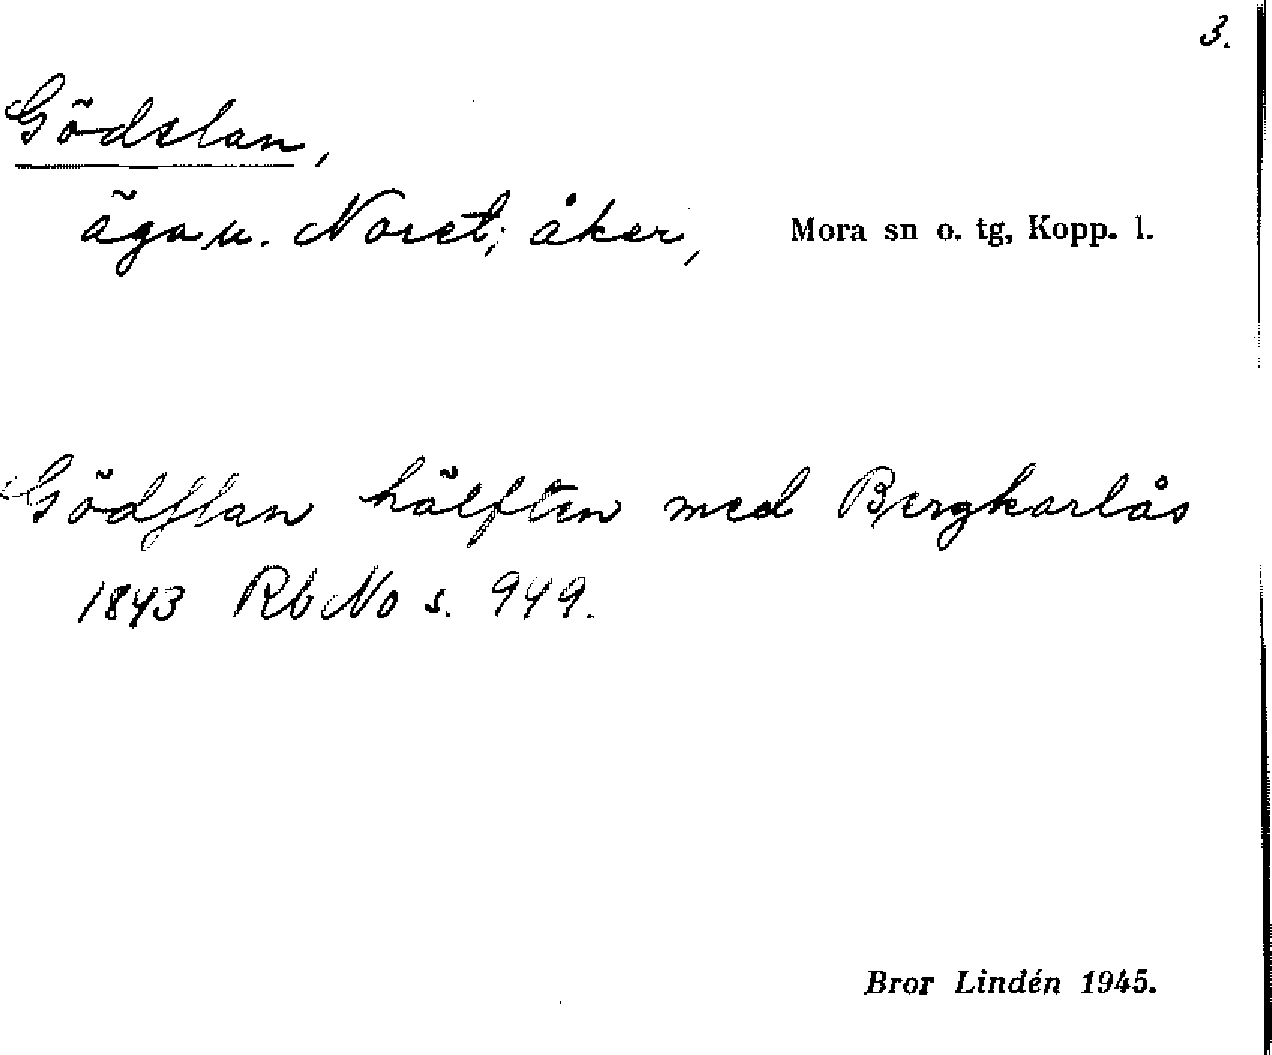 3.
Gödslan,
äga u. Noret; åker, Mora sn o. tg, Kopp. l.
Gödslan hälften med Bergkarlås
1843 Rb No s. 949.
Bror Lindén 1945.